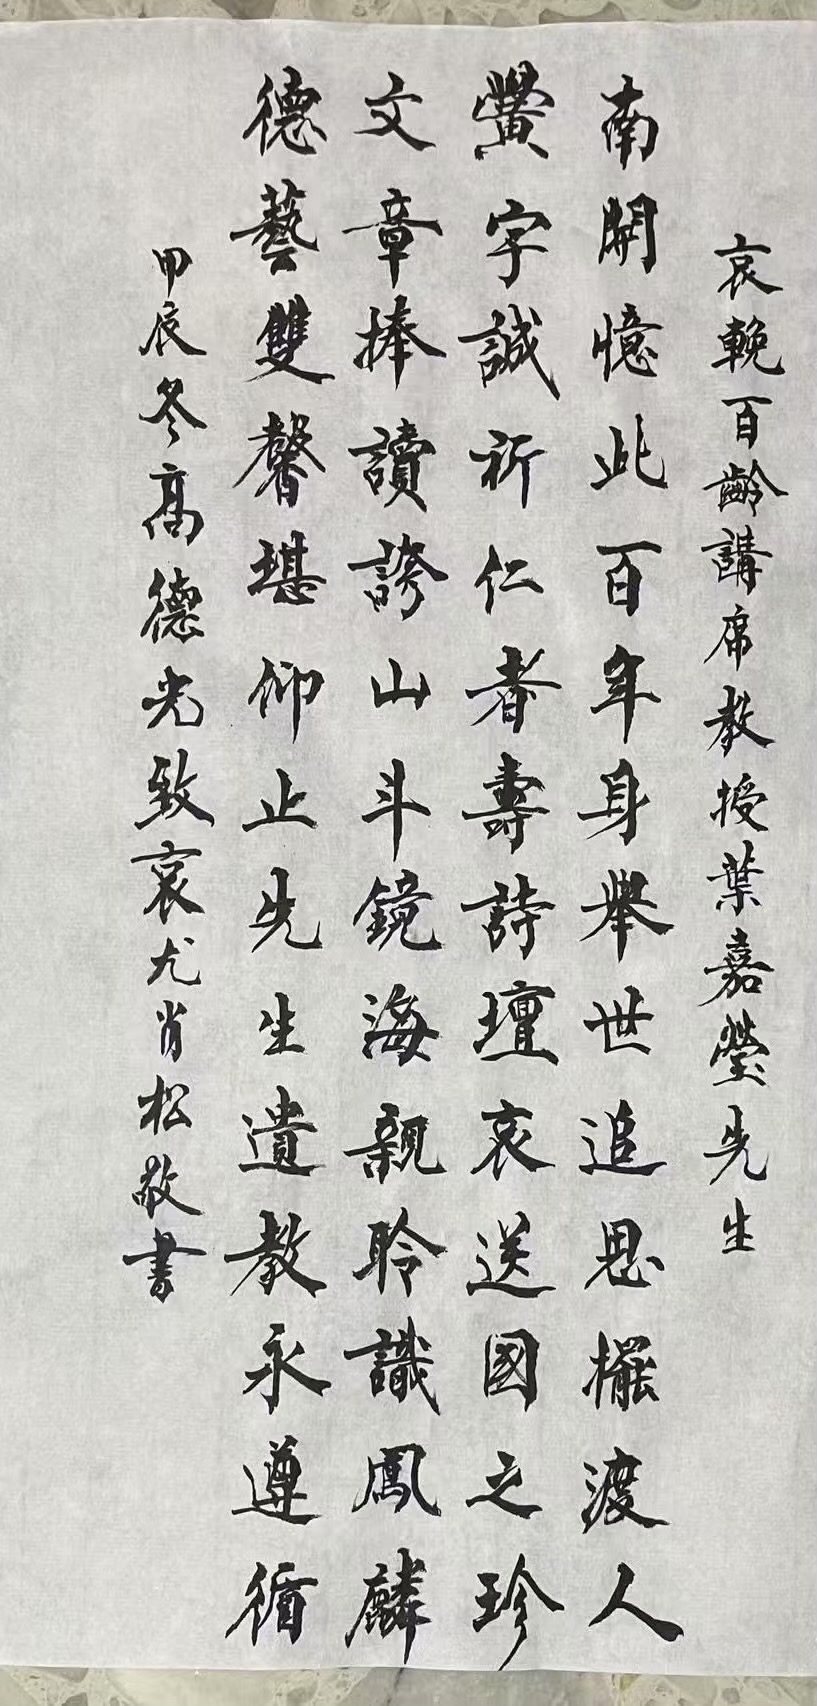 哀輓百齡講席教授葉嘉瑩先生
南開憶此百年身舉世追思擺渡人
黌字誠祈仁者壽詩壇哀送國之珍
文章捧讀誇山斗鏡海親聆識鳳麟
德藝雙馨堪仰止先生遺教永遵循
甲辰冬高德光致哀尤肖松敬書